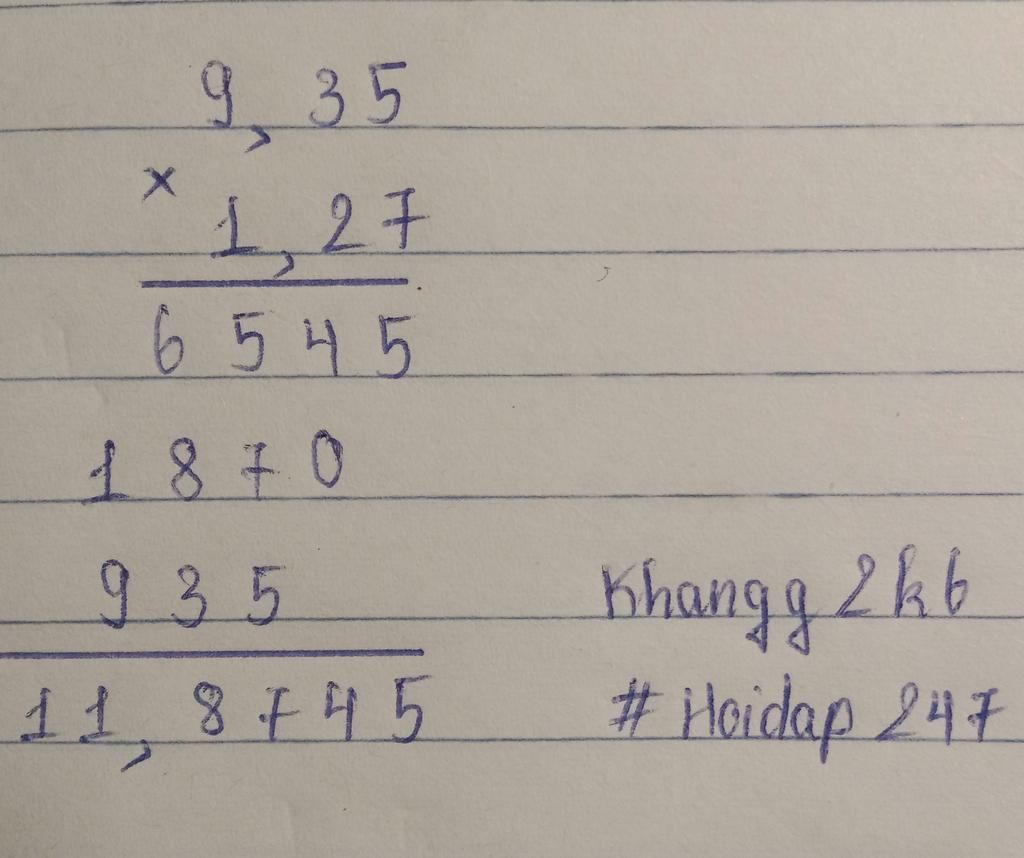 9,35
×
1,27
6545
1870
935
11,8745
Khangg2k6
# Hoidap 247